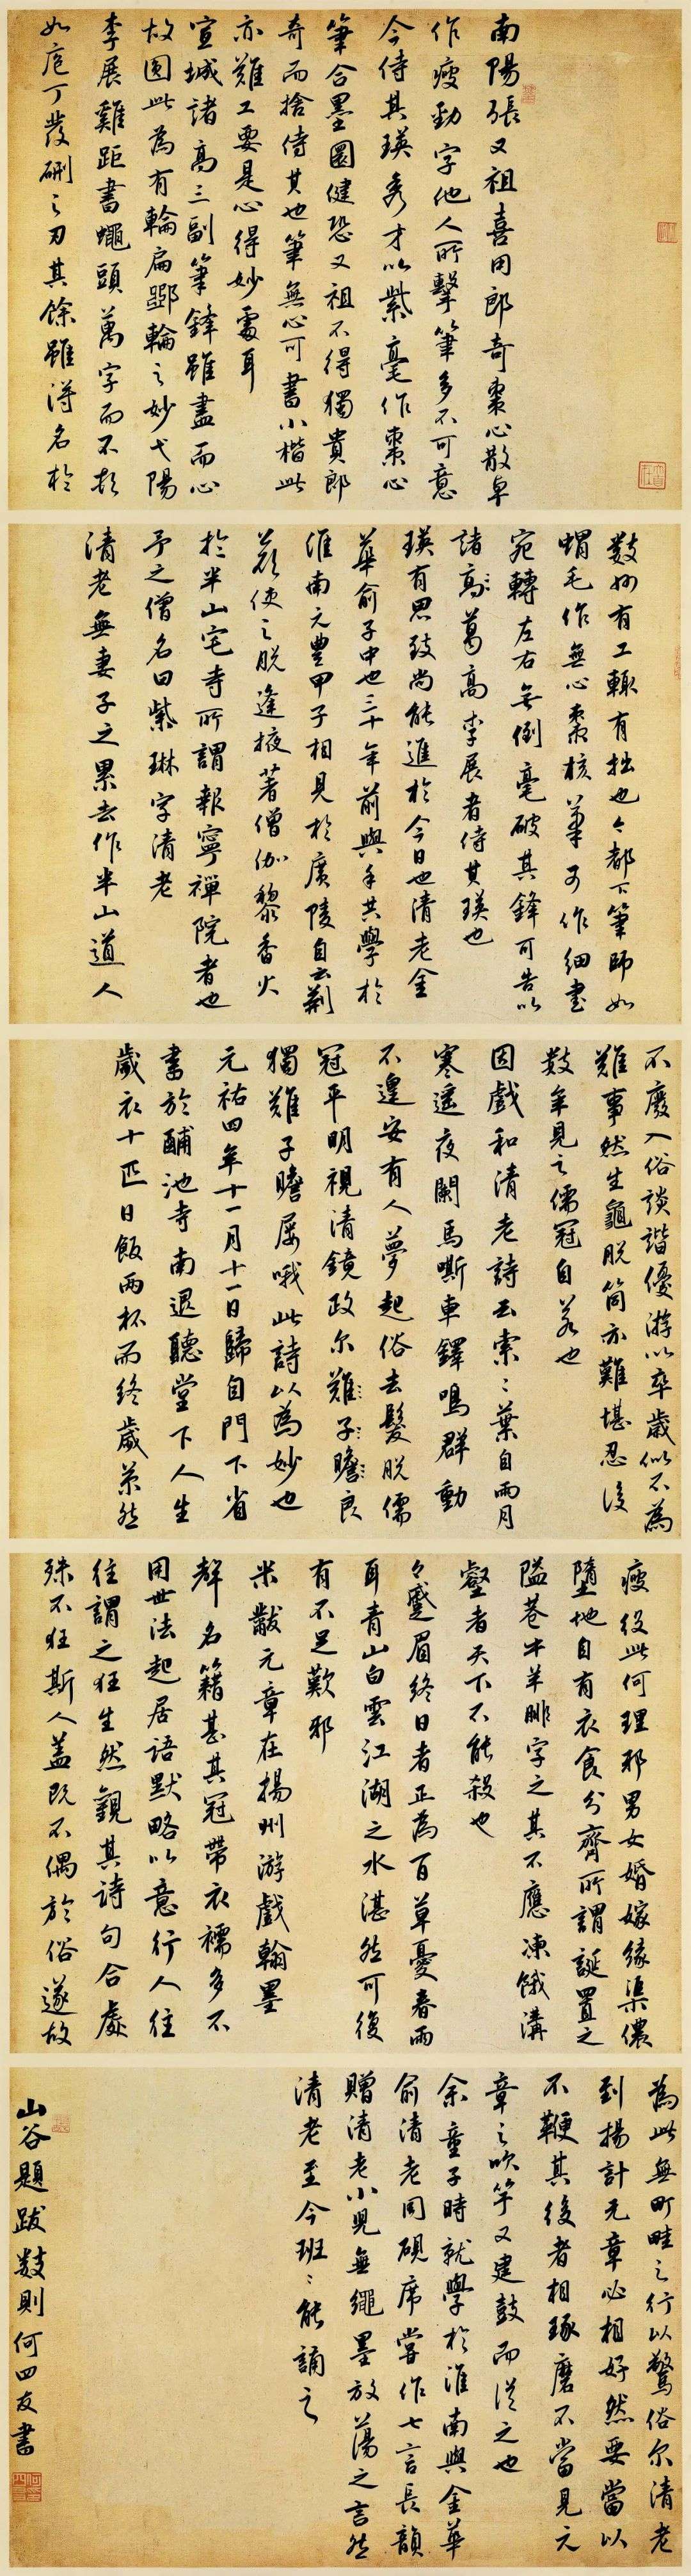 南陽張又祖喜用郎奇棗心散卓
作瘦勁字他人所擊筆多不可意
今侍其瑛秀才以紫毫作棗心
筆含墨圓健恐又祖不得獨貴郎
奇而捨侍其也筆無心可書小楷此
亦難工要是心得妙處耳
宣城諸高三副筆鋒雖盡而心
故圓此為有輪扁斲輪之妙弋陽
李展雞距書蠅頭萬字而不頓
如庖丁發硎之刃其餘雖得名於
數州有工輒有拙也今都下筆師如
蝟毛作無心棗核筆可作細書
宛轉左右無倒毫破其鋒可告以
諸高葛高李展者侍其瑛也
瑛有思致尚能進於今日也清老金
華俞子中也三十年前與予共學於
淮南元豐甲子相見於廣陵自云荊
公欲使之脫逢掖著僧伽黎香火
於半山宅寺所謂報寧禪院者也
予之僧名曰紫琳字清老
清老無妻子之累去作半山道人
不廢入俗談諧優游以卒歲似不為
難事然生龜脫筒亦難堪忍後
數年見之儒冠自若也
因戲和清老詩云索索葉自雨月
寒遙夜闌馬嘶車鐸鳴群動
不遑安有人夢超俗去髮脫儒
冠平明視清鏡政尔難子瞻良
獨難子瞻屢哦此詩以為妙也
元祐四年十一月十一日歸自門下省
書於酺池寺南退聽堂下人生
歲衣十匹日飯兩杯而終歲苶然
疲役此何理邪男女婚嫁緣渠儂
墮地自有衣食分齊所謂誕置之
隘巷牛羊腓字之其不應凍餓溝
壑者天下不能殺也
今蹙眉終日者正為百草憂春雨
耳青山白雲江湖之水湛然可復
有不足歎邪
米黻元章在揚州游戲翰墨
聲名籍甚其冠帶衣襦多不
用世法起居語默略以意行人往
往謂之狂生然觀其詩句合處
殊不狂斯人蓋既不偶於俗遂故
為此無町畦之行以驚俗尔清老
到揚計元章必相好然要當以
不鞭其後者相琢磨不當見元
章之吹竽又建鼓而從之也
余童子時就學於淮南與金華
俞清老同硯席嘗作七言長韻
贈清老小兒無繩墨放蕩之言然
清老至今班班能誦之
山谷題跋數則何四友書